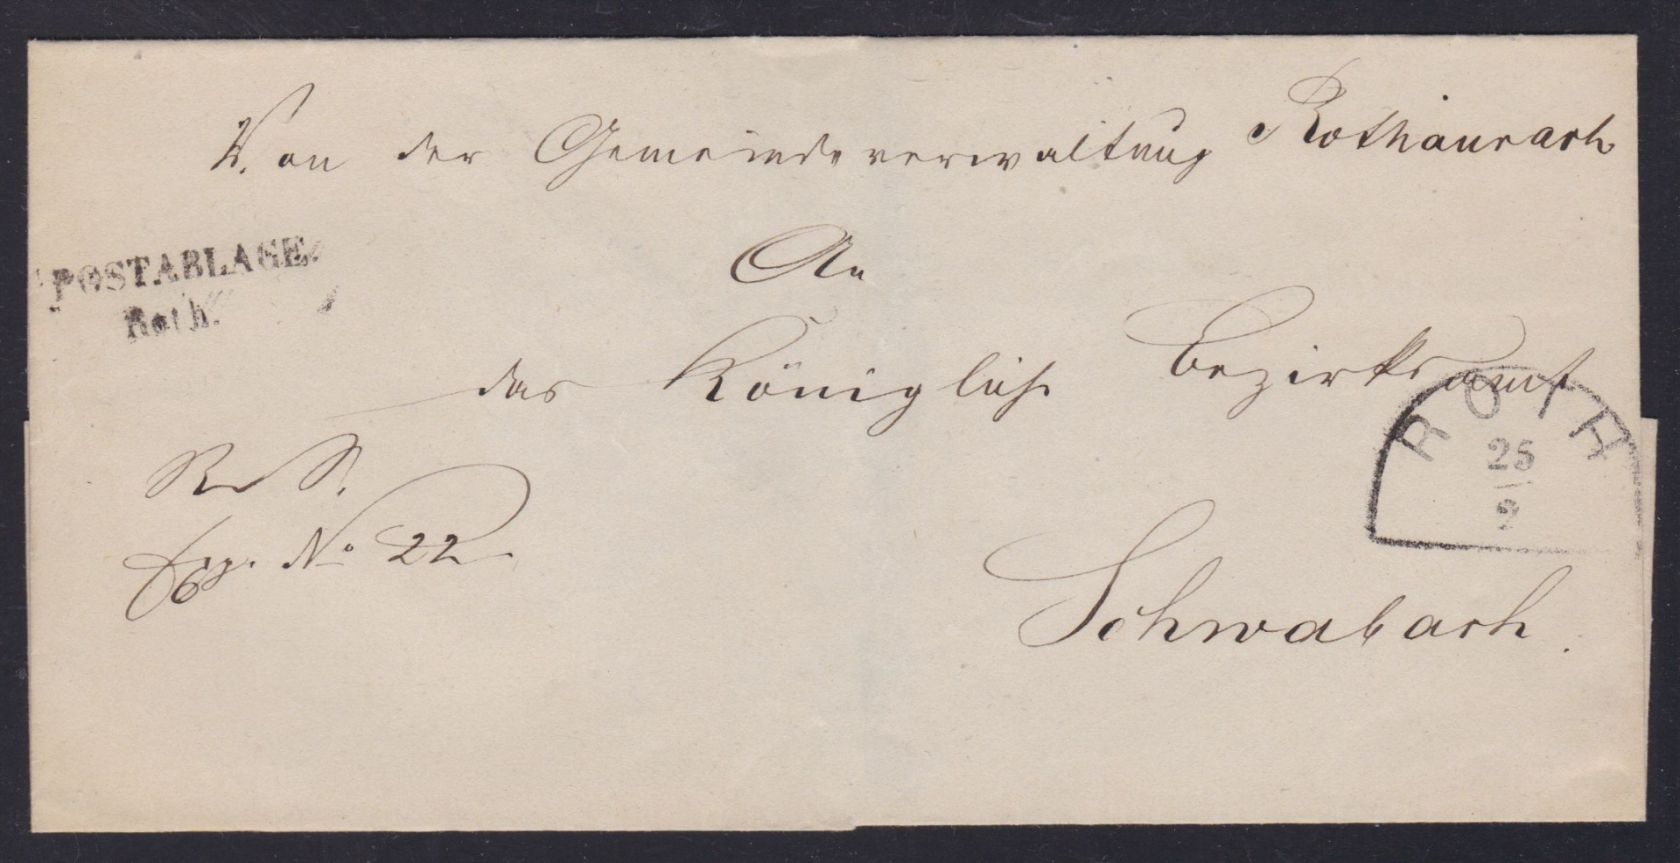 Von der Gemeindeverwaltung Rothaurach
An
POSTABLAGE
Roth.
das Königliche Bezirksamt
ROTH
25
9
R. S.
Exp. No. 22
Schwabach.